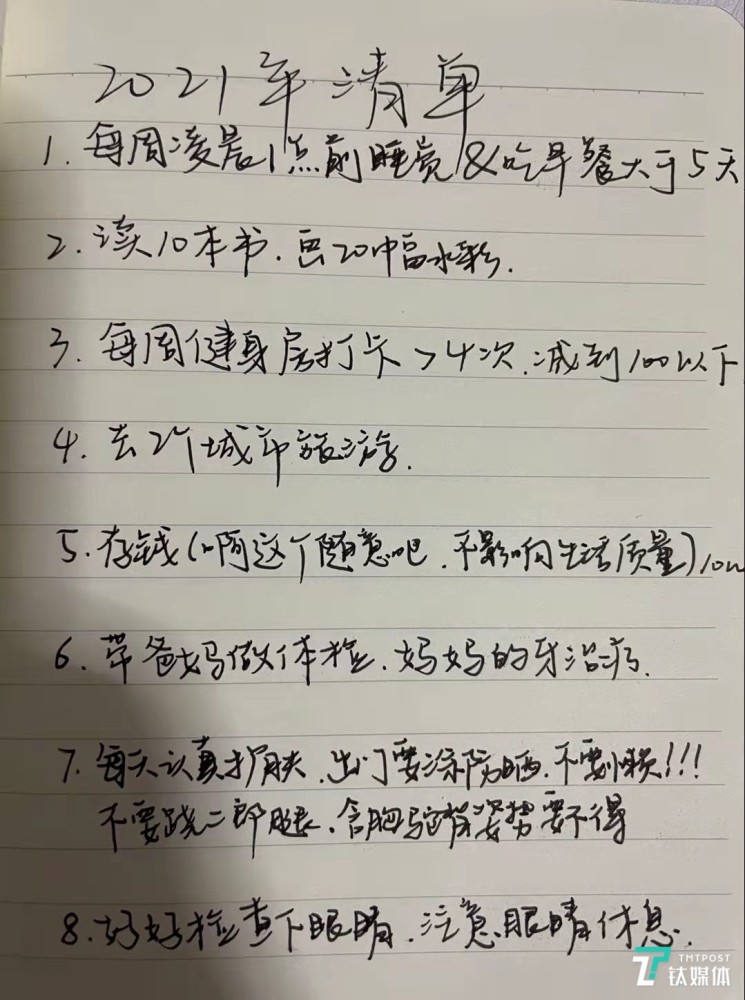 2021年清单
1. 每周凌晨1点前睡觉&吃早餐大于5天
2. 读10本书.画20幅水彩.
3. 每周健身房打卡>4次.减到100以下
4. 去2个城市旅游.
5. 存钱(啊这个随意吧.不影响生活质量)10w
6. 带爸妈做体检.妈妈的牙治疗.
7. 每天认真护肤.出门要涂防晒.不要懒!!!
不要跷二郎腿.含胸驼背姿势要不得
8. 好好检查下眼睛.注意眼睛休息.
TMTPOST
钛媒体